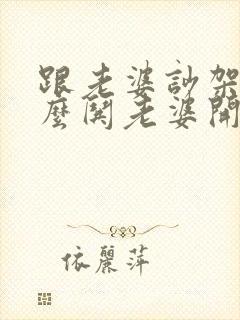 跟老婆訃架
麼鬨老婆開
依麗萍